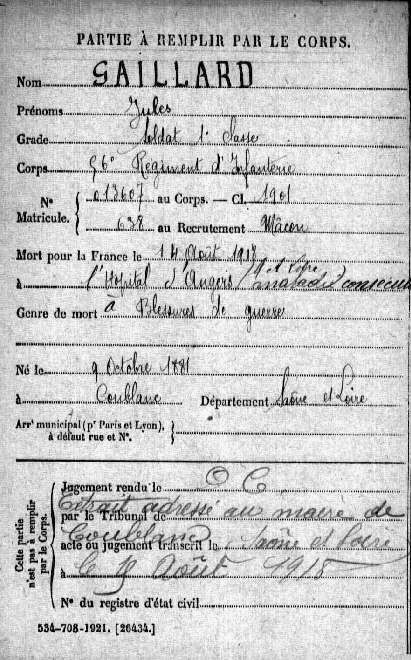 PARTIE À REMPLIR PAR LE CORPS.
Nom GAILLARD
Prénoms Jules
Grade Soldat
Corps 56e Regiment d'Infanterie
Nos Matricule. { 013607 au Corps. — Cl. 1901
638 au Recrutement Mâcon
Mort pour la France le 14 Août
à l'Hopital d'Angers maladie consecu
Genre de mort à Blessures de guerres
Né le 9 Octobre 1881
à Coublanc Département Saône et Loire
Arrt municipal (pr Paris et Lyon), à défaut rue et N°. }
Cette partie n'est pas à remplir par le Corps.
Jugement rendu le O C
Extrait adressé au maire de
par le Tribunal de
Coublanc Saône et Loire
acte ou jugement transcrit le
à le Août 1915
N° du registre d'état civil
534-708-1921. [26434.]